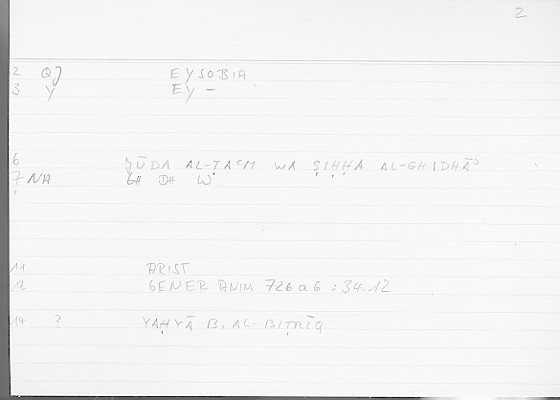 2
2 QJ EYSOBIA
3 Y EY -
6 JŪDA AL-ṬAʿM WA ṢIḤḤA AL-GHIDHĀʾ
7 NA GH DH W
11 ARIST
12 GENER ANIM 726a6 : 34.12
14 ? YAḤYĀ B. AL-BIṬRĪQ